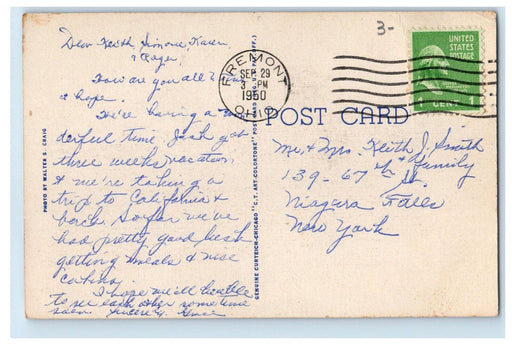 Dear Keith, Simone Karen
& Gage,
How are you all? Fine
I hope.
We're having a won-
derful time. Jack got
three weeks vacation
& we're taking a
trip to California &
back. So far we've
had pretty good luck
getting meals & nice
cabins.
I hope we'll be able
to see each other sometime
soon. Sincere
PHOTO BY WALTER S. CRAIG
GENUINE CURTEICH-CHICAGO "C.T. ART-COLORTONE" POST CARD
3-
FREMONT
SEP 29
3 PM
1950
OHIO
UNITED
STATES
POSTAGE
1 CENT 1
POST CARD
Mr. & Mrs. Keith J. Smith
& family
139-67th St.
Niagara Falls
New York